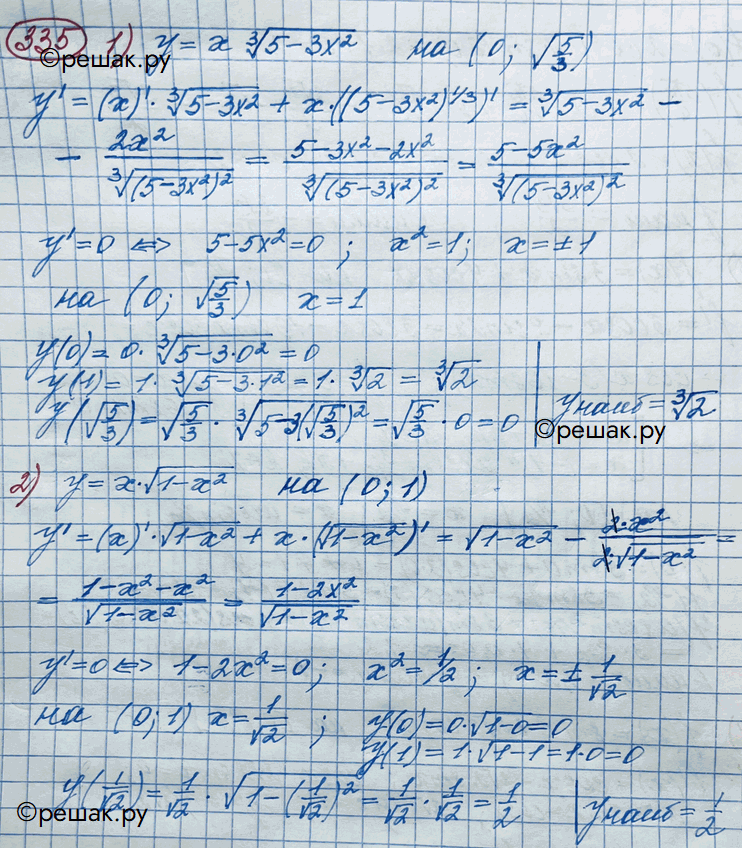 335 1) y = x ∛(5-3x²) на (0; √(5/3))
©решак.ру
y' = (x)'·∛(5-3x²) + x·((5-3x²)^(1/3))' = ∛(5-3x²) -
- 2x²/∛((5-3x²)²) = (5-3x²-2x²)/∛((5-3x²)²) = (5-5x²)/∛((5-3x²)²)
y'=0 ⇔ 5-5x²=0 ; x²=1; x=±1
на (0; √(5/3)) x=1
y(0)= 0·∛(5-3·0²) = 0
y(1)= 1·∛(5-3·1²) = 1·∛2 = ∛2
y(√(5/3)) = √(5/3)·∛(5-3(√(5/3))²) = √(5/3)·0 = 0
y наиб = ∛2
©решак.ру
2) y = x·√(1-x²) на (0; 1)
y' = (x)'·√(1-x²) + x·(√(1-x²))' = √(1-x²) - 2·x²/(2·√(1-x²)) =
= (1-x²-x²)/√(1-x²) = (1-2x²)/√(1-x²)
y'=0 ⇔ 1-2x²=0; x²=1/2; x=±1/√2
на (0; 1) x=1/√2 ; y(0)=0·√(1-0)=0
y(1)=1·√(1-1)=1·0=0
y(1/√2) = 1/√2·√(1-(1/√2)²) = 1/√2·1/√2 = 1/2
y наиб = 1/2
©решак.ру